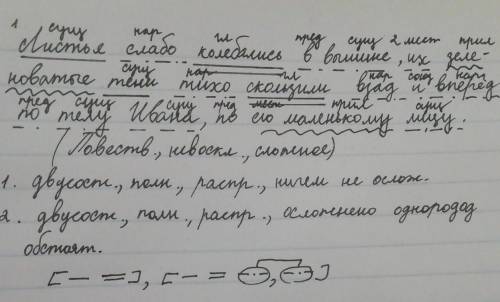 1 сущ нар гл пред сущ 2 мест прил
Листья слабо колебались в вышине, их зеле-
сущ нар гл нар союз нар
новатые тени тихо скользили взад и вперёд
пред сущ сущ пред мест прил сущ
по телу Ивана, по его маленькому лицу.
(Повеств., невоскл., сложное)
1. двусост., полн., распр., ничем не ослож.
2. двусост., полн., распр., осложнено
обстоят.
[— =], [— = , ]